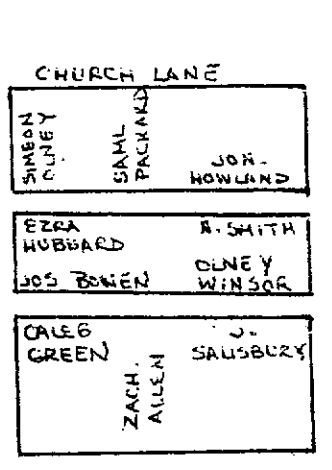 CHURCH LANE
SIMEON
OLNEY
SAML
PACKARD
JON-
HOWLAND
EZRA
HUBBARD
A. SMITH
JOS BOWEN
OLNEY
WINSOR
CALEB
GREEN
ZACH.
ALLEN
J.
SALISBURY